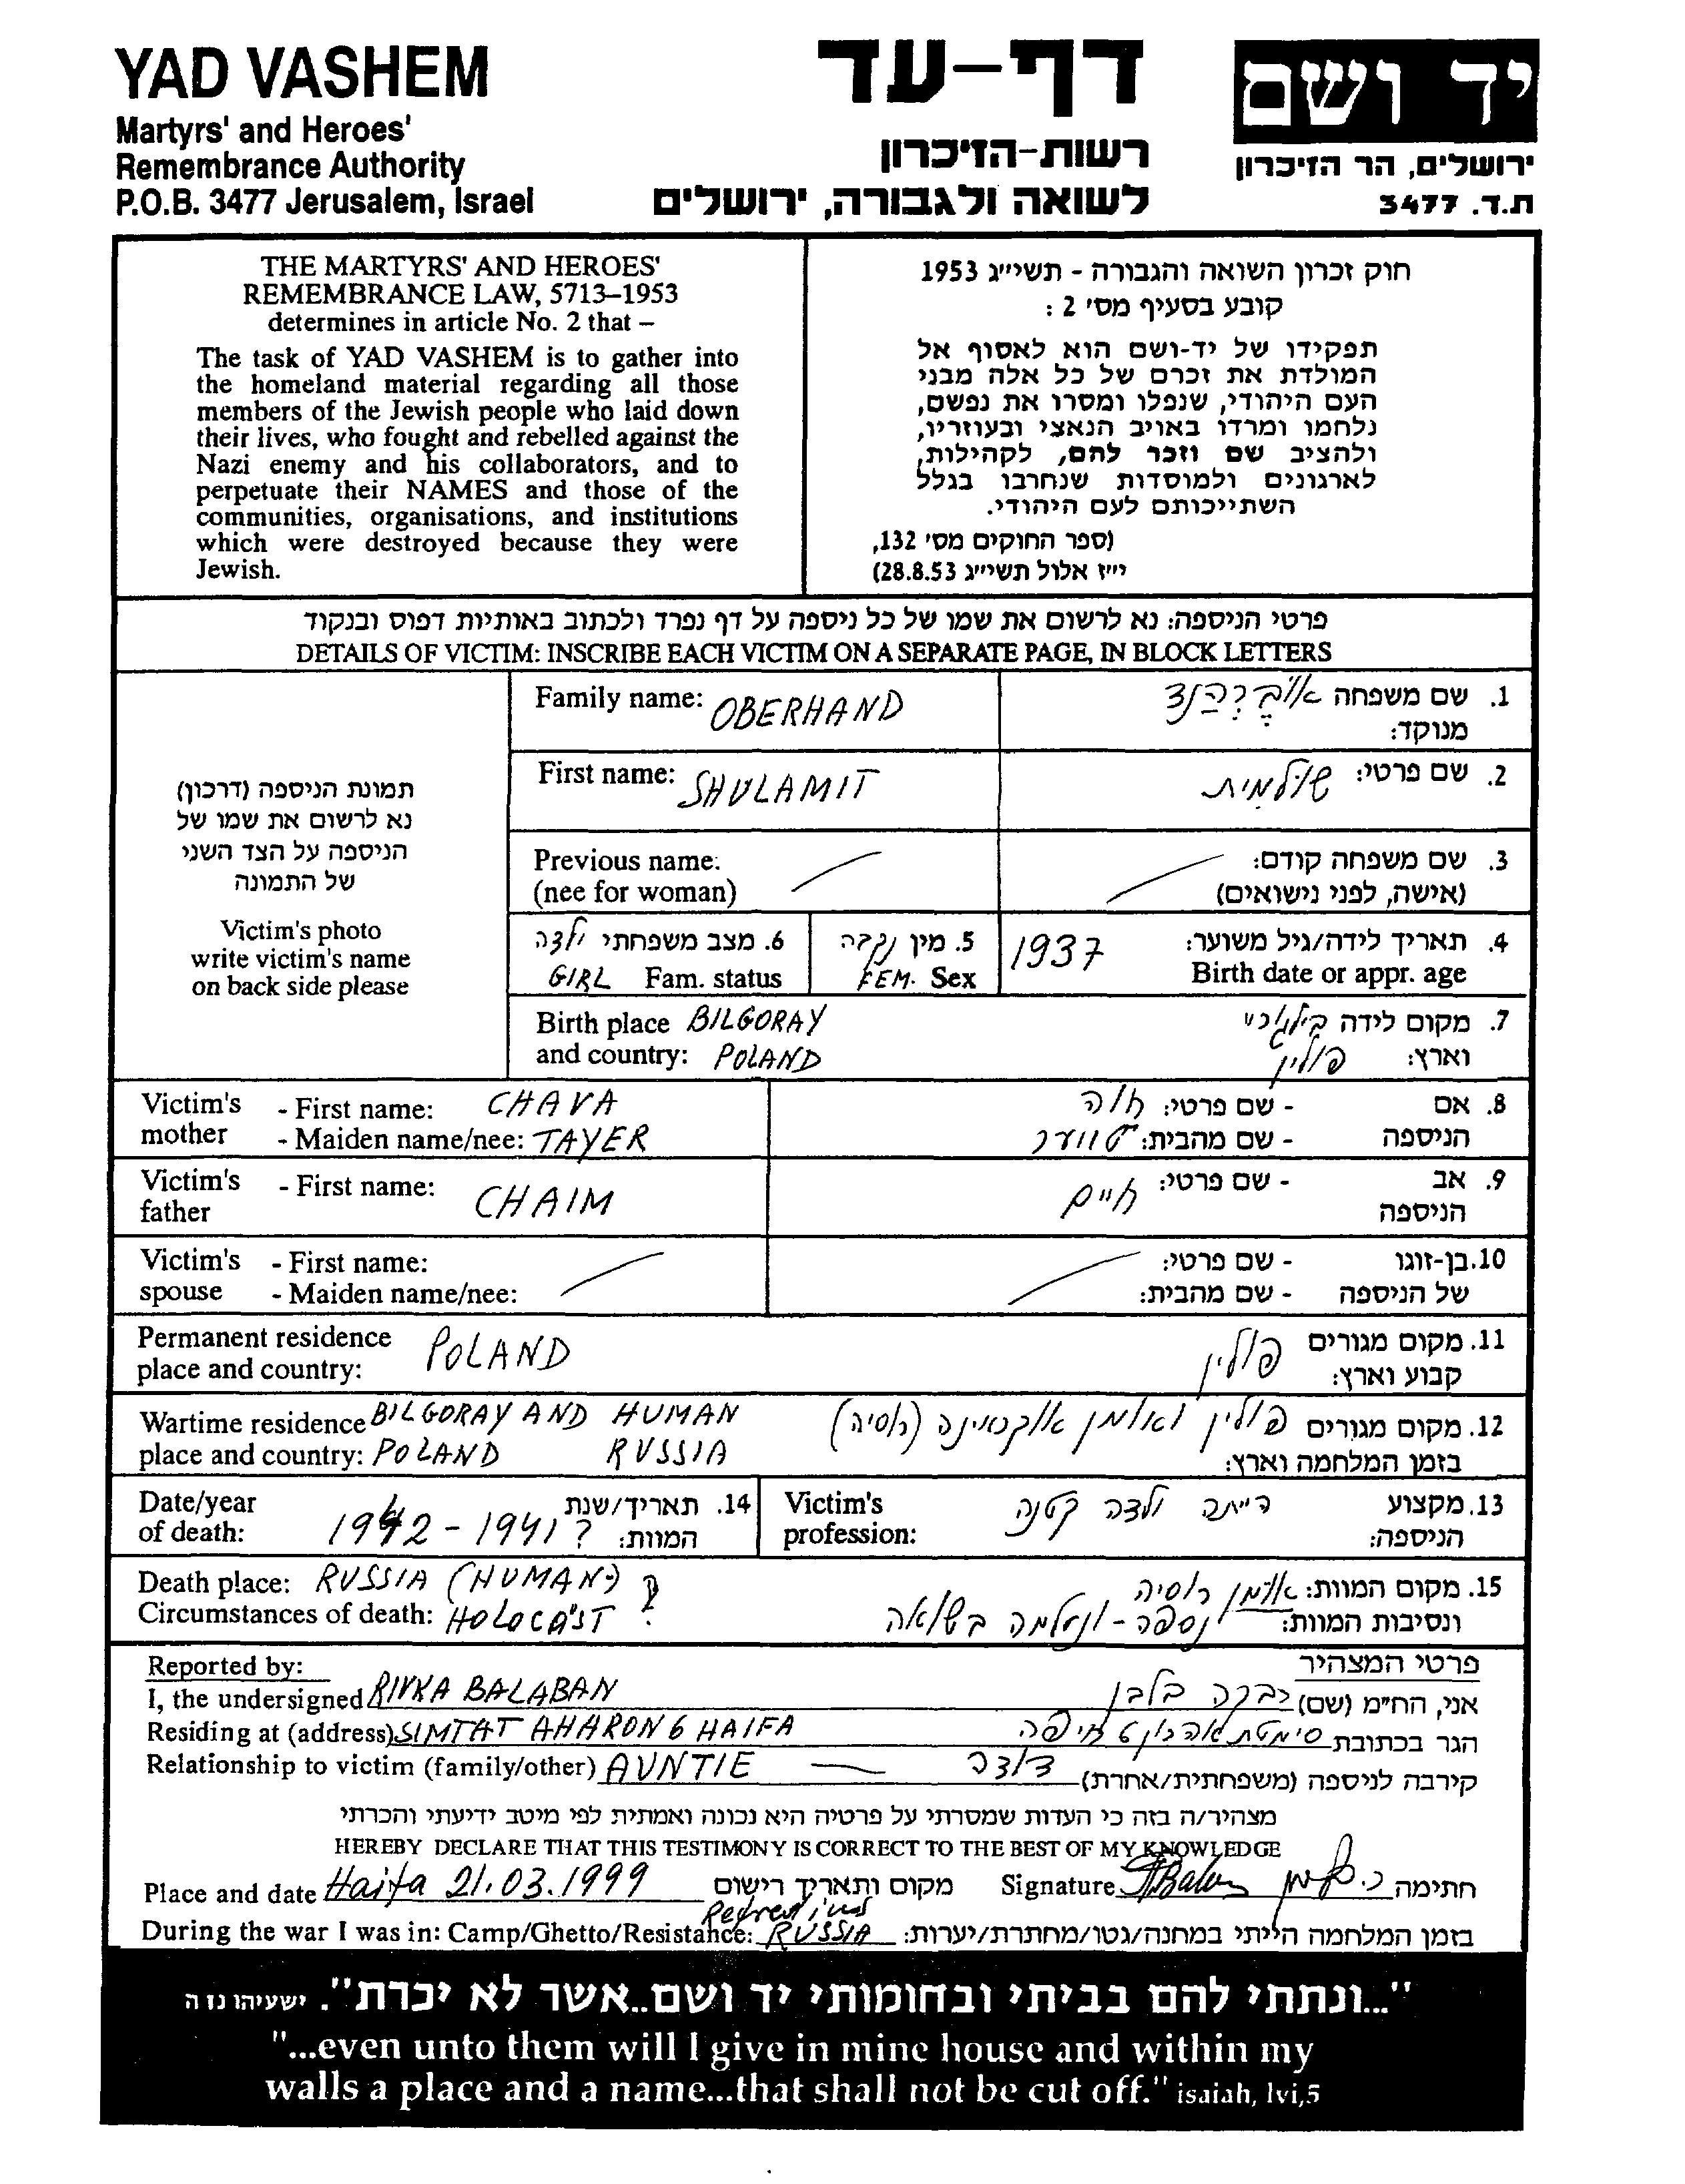 YAD VASHEM
Martyrs' and Heroes'
Remembrance Authority
P.O.B. 3477 Jerusalem, Israel
דף-עד
רשות-הזיכרון
לשואה ולגבורה, ירושלים
יד ושם
ירושלים, הר הזיכרון
ת.ד. 3477
THE MARTYRS' AND HEROES'
REMEMBRANCE LAW, 5713–1953
determines in article No. 2 that –
The task of YAD VASHEM is to gather into
the homeland material regarding all those
members of the Jewish people who laid down
their lives, who fought and rebelled against the
Nazi enemy and his collaborators, and to
perpetuate their NAMES and those of the
communities, organisations, and institutions
which were destroyed because they were
Jewish.
חוק זכרון השואה והגבורה - תשי״ג 1953
קובע בסעיף מס' 2 :
תפקידו של יד-ושם הוא לאסוף אל
המולדת את זכרם של כל אלה מבני
העם היהודי, שנפלו ומסרו את נפשם,
נלחמו ומרדו באויב הנאצי ובעוזריו,
ולהציב שם וזכר להם, לקהילות,
לארגונים ולמוסדות שנחרבו בגלל
השתייכותם לעם היהודי.
(ספר החוקים מס' 132,
י״ז אלול תשי״ג 28.8.53)
פרטי הניספה: נא לרשום את שמו של כל ניספה על דף נפרד ולכתוב באותיות דפוס ובנקוד
DETAILS OF VICTIM: INSCRIBE EACH VICTIM ON A SEPARATE PAGE, IN BLOCK LETTERS
תמונת הניספה (דרכון)
נא לרשום את שמו של
הניספה על הצד השני
של התמונה
Victim's photo
write victim's name
on back side please
Family name: OBERHAND
1. שם משפחה אוֹבֶּרְהַנד
מנוקד:
First name: SHULAMIT
2. שם פרטי: שולמית
Previous name:
(nee for woman)
3. שם משפחה קודם:
(אישה, לפני נישואים)
6. מצב משפחתי ילדה
GIRL Fam. status
5. מין נקבה
FEM. Sex
4. תאריך לידה/גיל משוער: 1937
Birth date or appr. age
Birth place BILGORAY
and country: POLAND
7. מקום לידה
וארץ: פולין
Victim's - First name: CHAVA
mother - Maiden name/nee: TAYER
8. אם - שם פרטי: חוה
הניספה - שם מהבית:
Victim's - First name: CHAIM
father
9. אב - שם פרטי: חיים
הניספה
Victim's - First name:
spouse - Maiden name/nee:
10. בן-זוגו - שם פרטי:
של הניספה - שם מהבית:
Permanent residence POLAND
place and country:
11. מקום מגורים פולין
קבוע וארץ:
Wartime residence BILGORAY AND HUMAN
place and country: POLAND RUSSIA
12. מקום מגורים פולין ואומן אוקראינה (רוסיה)
בזמן המלחמה וארץ:
Date/year
of death: 1942 - 1941 ?
14. תאריך/שנת
המוות:
Victim's
profession:
13. מקצוע הייתה ילדה קטנה
הניספה:
Death place: RUSSIA (HUMAN) ?
Circumstances of death: HOLOCAUST
15. מקום המוות: אומן רוסיה
ונסיבות המוות: נספה - ונעלמה בשואה
Reported by:
פרטי המצהיר
I, the undersigned RIVKA BALABAN
אני, הח״מ (שם) רבקה בלבן
Residing at (address) SIMTAT AHARON 6 HAIFA
הגר בכתובת סימטת אהרון 6 חיפה
Relationship to victim (family/other) AUNTIE
קירבה לניספה (משפחתית/אחרת) דודה
מצהיר/ה בזה כי העדות שמסרתי על פרטיה היא נכונה ואמתית לפי מיטב ידיעתי והכרתי
HEREBY DECLARE THAT THIS TESTIMONY IS CORRECT TO THE BEST OF MY KNOWLEDGE
Place and date Haifa 21.03.1999 מקום ותאריך רישום Signature חתימה
During the war I was in: Camp/Ghetto/Resistance: RUSSIA בזמן המלחמה הייתי במחנה/גטו/מחתרת/יערות:
"...ונתתי להם בביתי ובחומותי יד ושם..אשר לא יכרת". ישעיהו נו ה
"...even unto them will I give in mine house and within my
walls a place and a name...that shall not be cut off." isaiah, lvi,5